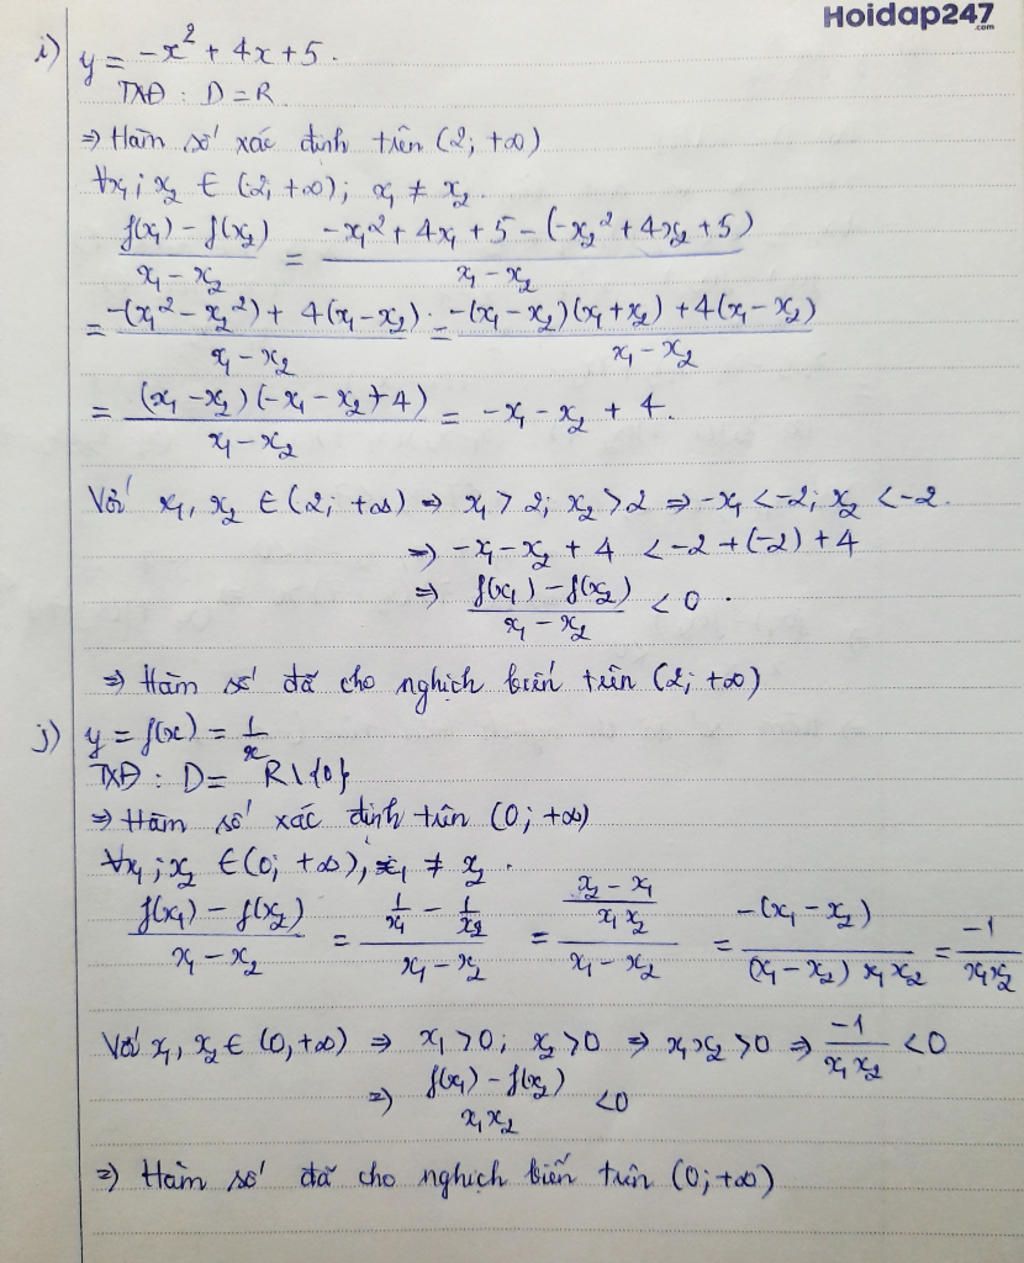 Hoidap247
.com
i) y = -x² + 4x + 5.
TXĐ : D = R
⇒ Hàm số xác định trên (2; +∞)
∀x₁; x₂ ∈ (2; +∞); x₁ ≠ x₂.
(f(x₁) - f(x₂))/(x₁ - x₂) = (-x₁² + 4x₁ + 5 - (-x₂² + 4x₂ + 5))/(x₁ - x₂)
= (-(x₁² - x₂²) + 4(x₁ - x₂))/(x₁ - x₂) = (-(x₁ - x₂)(x₁ + x₂) + 4(x₁ - x₂))/(x₁ - x₂)
= ((x₁ - x₂)(-x₁ - x₂ + 4))/(x₁ - x₂) = -x₁ - x₂ + 4.
Với x₁, x₂ ∈ (2; +∞) ⇒ x₁ > 2; x₂ > 2 ⇒ -x₁ < -2; x₂ < -2.
⇒ -x₁ - x₂ + 4 < -2 + (-2) + 4
⇒ (f(x₁) - f(x₂))/(x₁ - x₂) < 0.
⇒ Hàm số đã cho nghịch biến trên (2; +∞)
j) y = f(x) = 1/x
TXĐ : D = R\{0}
⇒ Hàm số xác định trên (0; +∞)
∀x₁; x₂ ∈ (0; +∞), x₁ ≠ x₂.
(f(x₁) - f(x₂))/(x₁ - x₂) = (1/x₁ - 1/x₂)/(x₁ - x₂) = ((x₂ - x₁)/(x₁x₂))/(x₁ - x₂) = (-(x₁ - x₂))/((x₁ - x₂)x₁x₂) = -1/(x₁x₂)
Với x₁, x₂ ∈ (0, +∞) ⇒ x₁ > 0; x₂ > 0 ⇒ x₁x₂ > 0 ⇒ -1/(x₁x₂) < 0
⇒ (f(x₁) - f(x₂))/(x₁x₂) < 0
⇒ Hàm số đã cho nghịch biến trên (0; +∞)